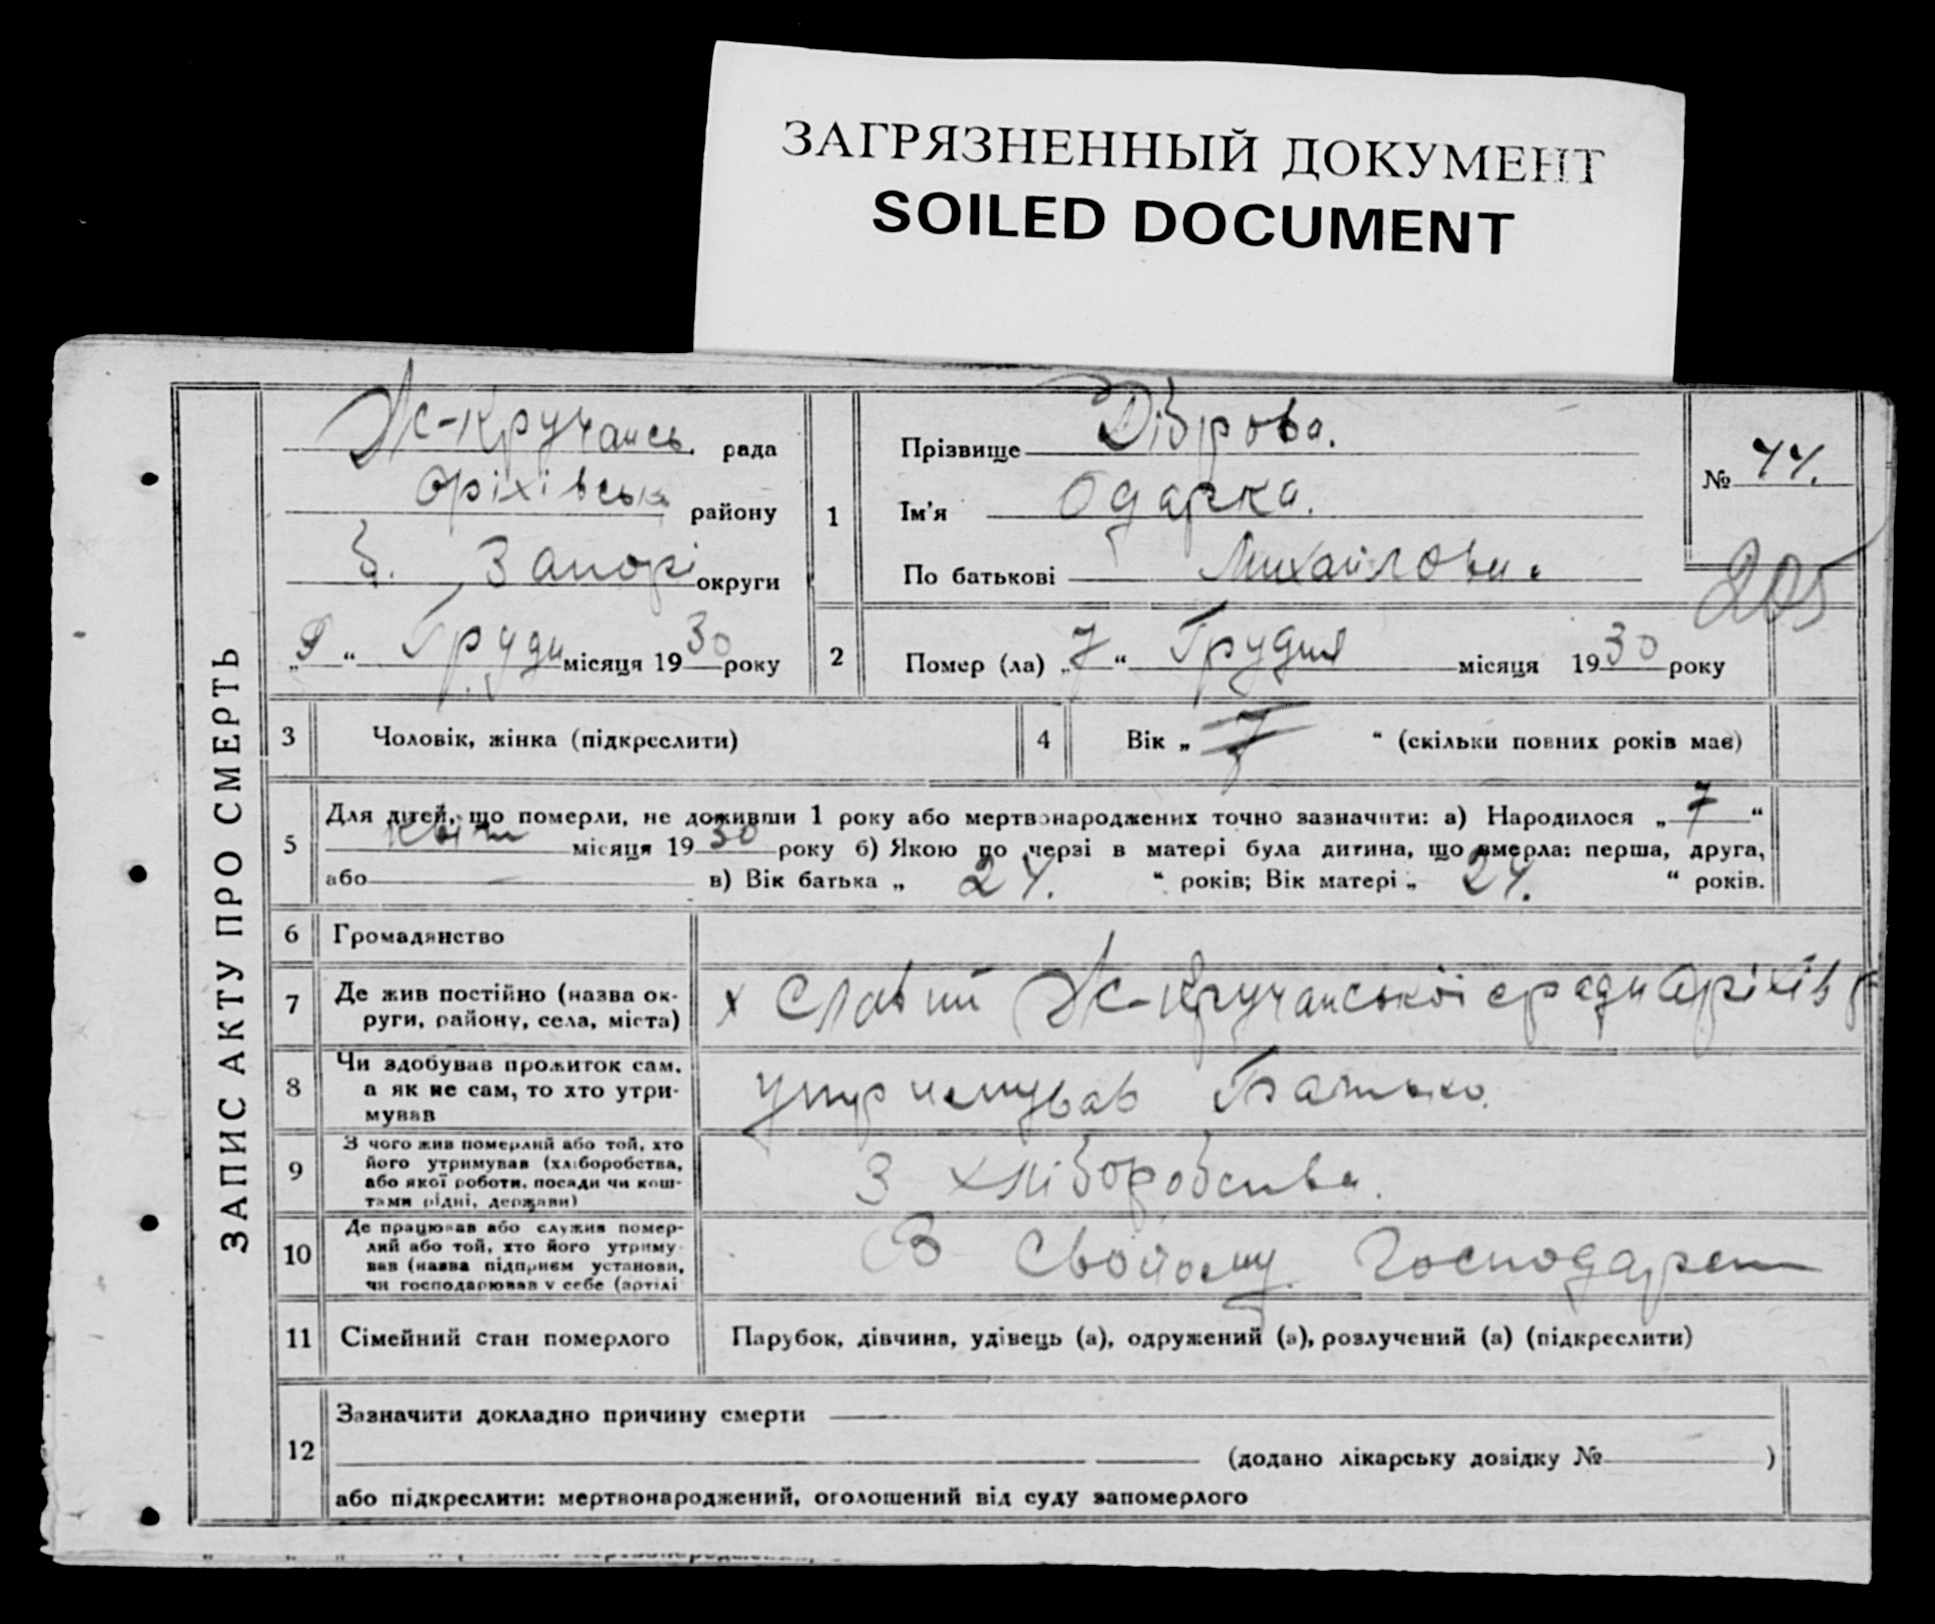 ЗАГРЯЗНЕННЫЙ ДОКУМЕНТ
SOILED DOCUMENT
ЗАПИС АКТУ ПРО СМЕРТЬ
Ж-Кручансь. рада
Оріхівськ району
б. Запорі округи
„9“ Груди місяця 1930 року
1
Прізвище Діброва.
Ім'я Одарка.
По батькові Михайловн.
№ 44.
205
2 Помер (ла) „7“ Грудня місяця 1930 року
3 Чоловік, жінка (підкреслити)
4 Вік „7“ (скільки повних років має)
5 Для дітей, що померли, не доживши 1 року або мертвонароджених точно зазначити: а) Народилося „7“
квітн місяця 1930 року б) Якою по черзі в матері була дитина, що вмерла: перша, друга,
або в) Вік батька „24.“ років; Вік матері „24.“ років.
6 Громадянство
7 Де жив постійно (назва ок-
руги, району, села, міста)
х Славний Ж-Кручанської с ради Оріхів р
8 Чи здобував прожиток сам,
а як не сам, то хто утри-
мував
утримував Батько.
9 З чого жив померлий або той, хто
його утримував (хліборобства,
або якої роботи, посади чи кош-
тами рідні, держави)
З хліборобства.
10 Де працював або служив помер-
лий або той, хто його утриму-
вав (назва підприєм установи,
чи господарював у себе (артілі
В свойому господарст
11 Сімейний стан померлого
Парубок, дівчина, удівець (а), одружений (а), розлучений (а) (підкреслити)
12 Зазначити докладно причину смерти
(додано лікарську довідку № )
або підкреслити: мертвонароджений, оголошений від суду запомерлого